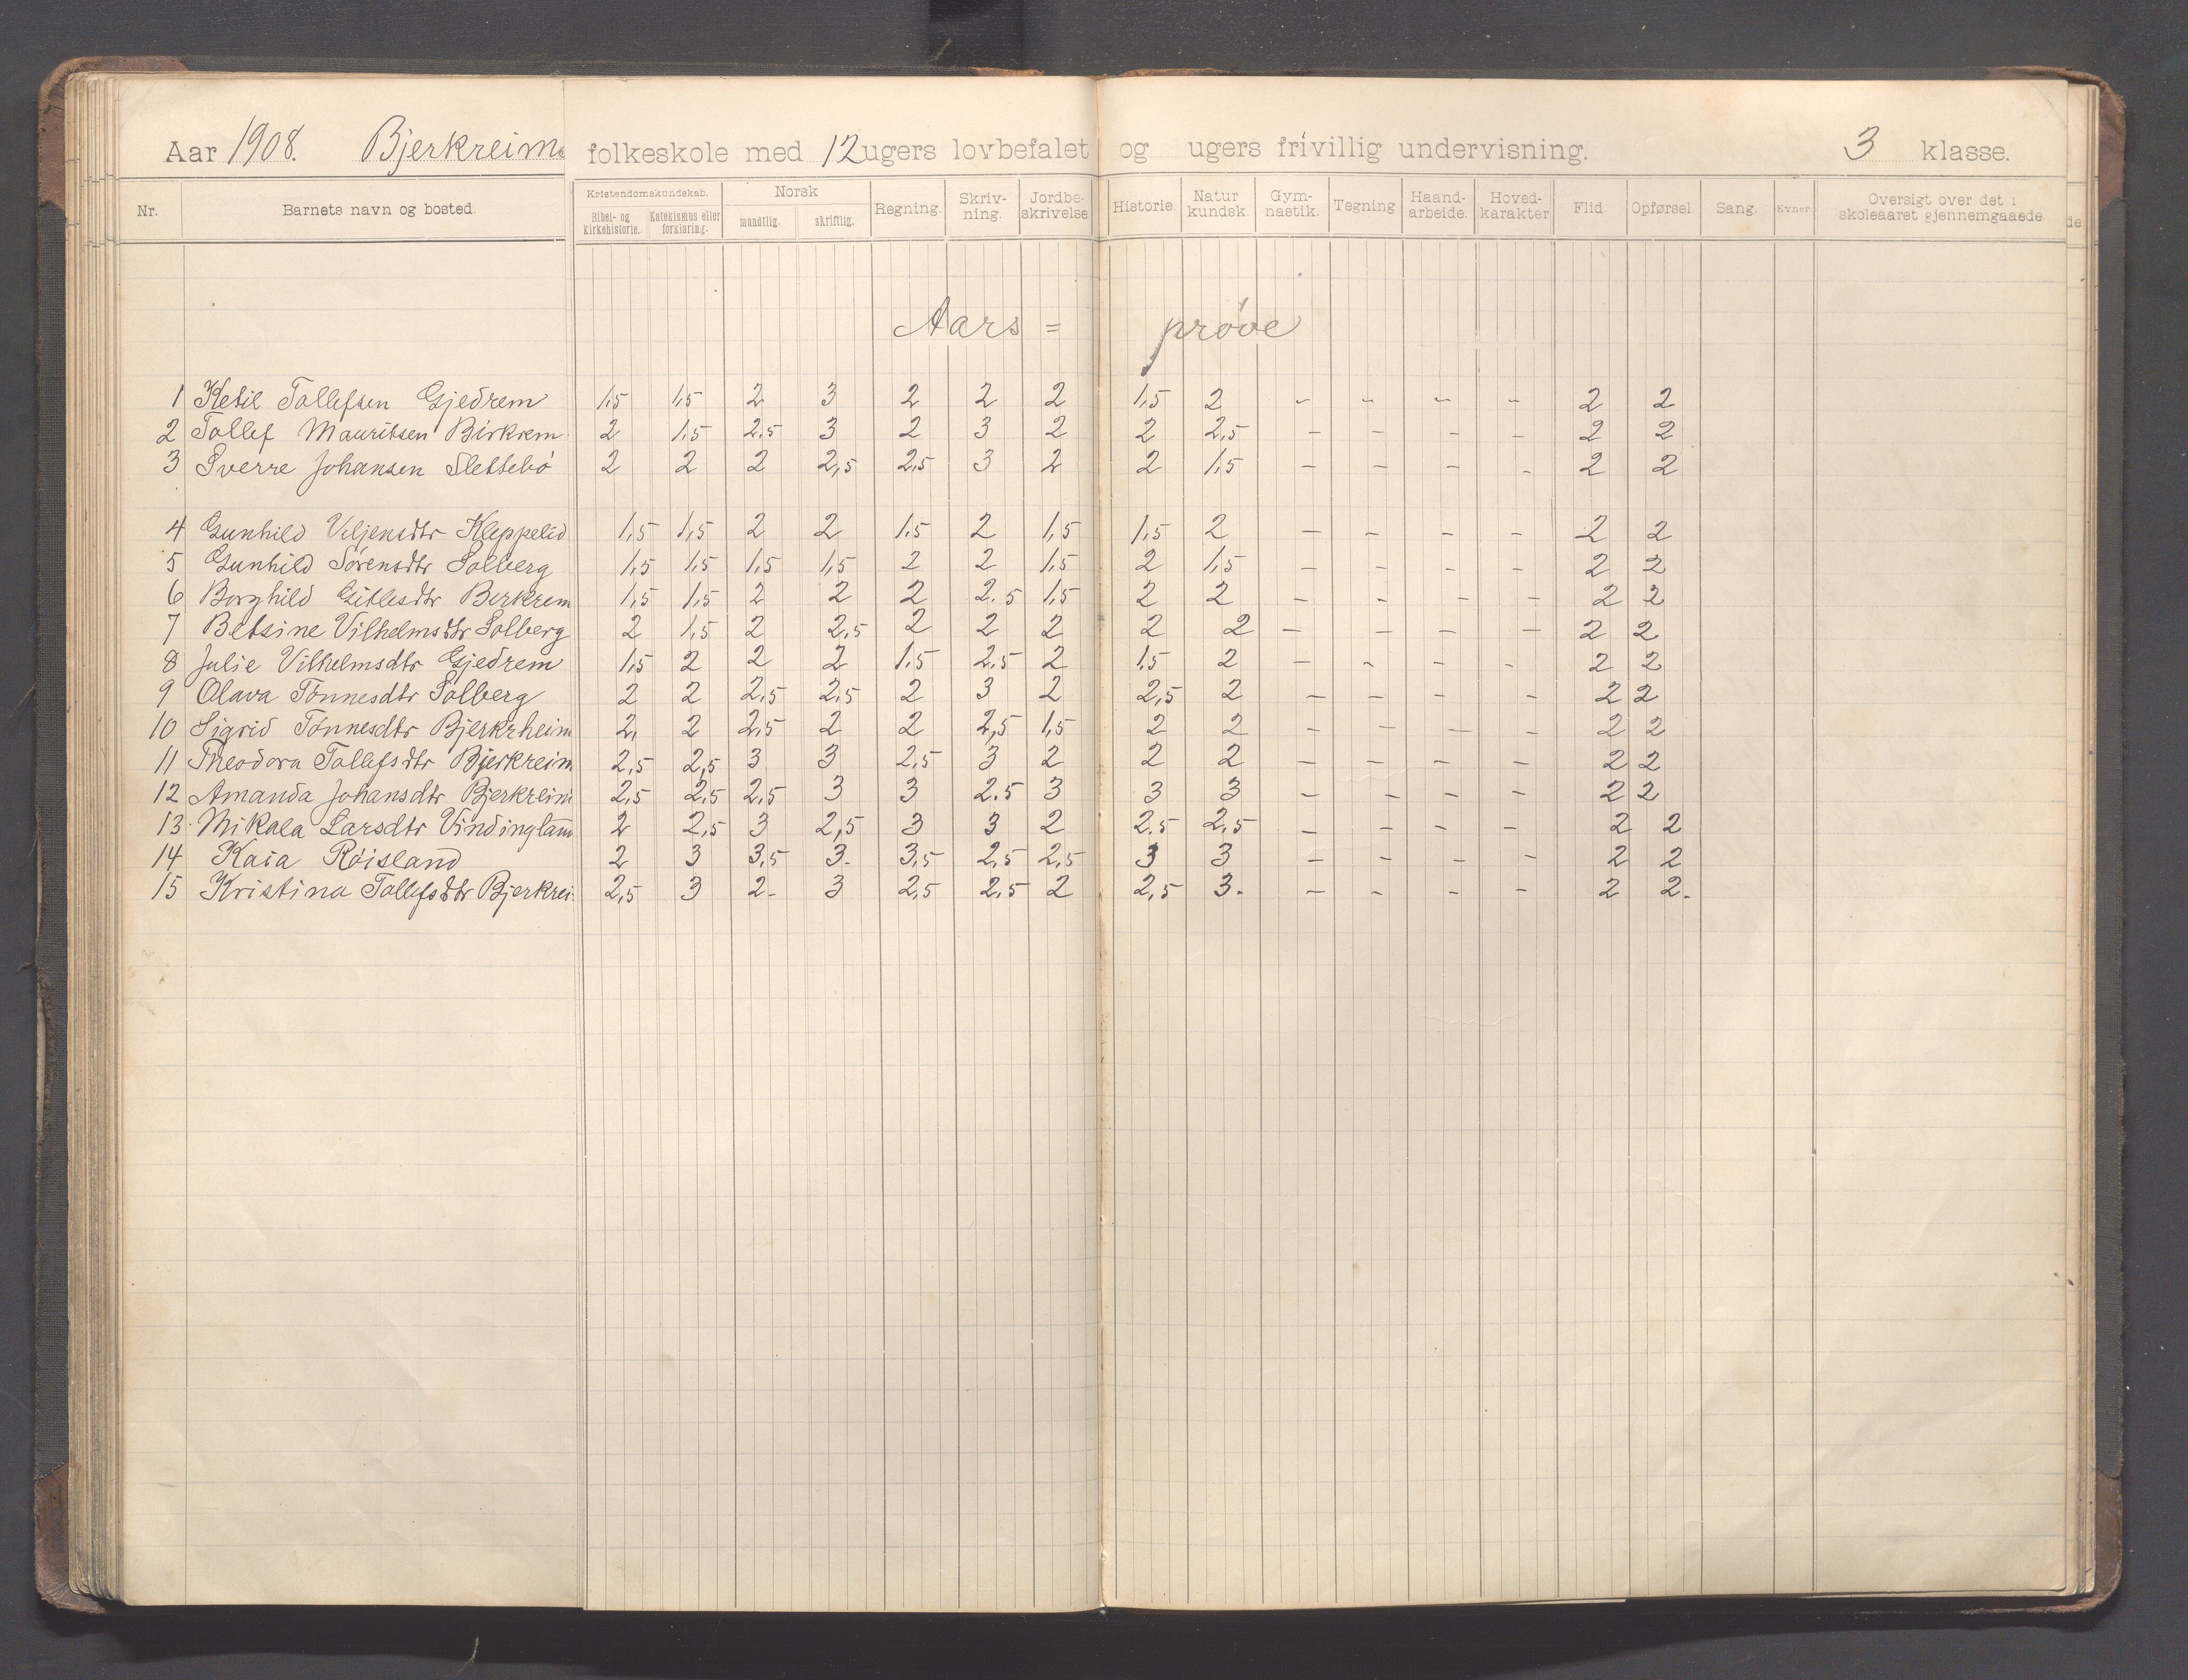 Aar 1908. Bjerkreims folkeskole med 12 ugers lovbefalet og ugers frivillig undervisning. 3 klasse.
Nr. Barnets navn og bosted. Kristendomskundskab. Bibel- og kirkehistorie. Katekismus eller forklaring. Norsk mundtlig. skriftlig. Regning. Skriv-ning. Jordbe-skrivelse Historie. Natur kundsk. Gym-nastik. Tegning Haand-arbeide. Hoved-karakter Flid. Opførsel. Sang. Evner Oversigt over det i skoleaaret gjennemgaaede.
Aars = prøve
1 Ketil Tollefsen Gjedrem 1,5 1,5 2 3 2 2 2 1,5 2 - - - - 2 2
2 Tollef Mauritsen Birkrem 2 1,5 2,5 3 2 3 2 2 2,5 - - - - 2 2
3 Sverre Johansen Slettebø 2 2 2 2,5 2,5 3 2 2 1,5 - - - - 2 2
4 Gunhild Viljensdtr Kleppelid 1,5 1,5 2 2 1,5 2 1,5 1,5 2 - - - - 2 2
5 Gunhild Sørensdtr Solberg 1,5 1,5 1,5 1,5 2 2 1,5 2 1,5 - - - - 2 2
6 Borghild Gitlesdtr Berkrem 1,5 1,5 2 2 2 2.5 1,5 2 2 - - - - 2 2
7 Betsine Vilhelmsdtr Solberg 2 1,5 2 2,5 2 2 2 2 2 - - - - 2 2
8 Julie Vilhelmsdtr Gjedrem 1,5 2 2 2 1,5 2,5 2 1,5 2 - - - - 2 2
9 Olava Tønnesdtr Solberg 2 2 2,5 2,5 2 3 2 2,5 2 - - - - 2 2
10 Sigrid Tønnesdtr Bjerkrheim 2, 2 2,5 2 2 2,5 1,5 2 2 - - - - 2 2
11 Theodora Tollefsdtr Bjerkreim 2,5 2,5 3 3 2,5 3 2 2 2 - - - - 2 2
12 Amanda Johansdtr Bjerkreim 2,5 2,5 2,5 3 3 2.5 3 3 3 - - - - 2 2
13. Mikala Larsdtr Vindingland 2 2,5 3 2,5 3 3 2 2.5 2,5 - - - - 2 2
14 Kaia Røisland 2 3 3,5 3. 3,5 2,5 2,5 3 3 - - - - 2 2
15 Kristina Tollefsdtr Bjerkrei 2,5 3 2- 3 2,5 2,5 2 2,5 3. - - - - 2 2.